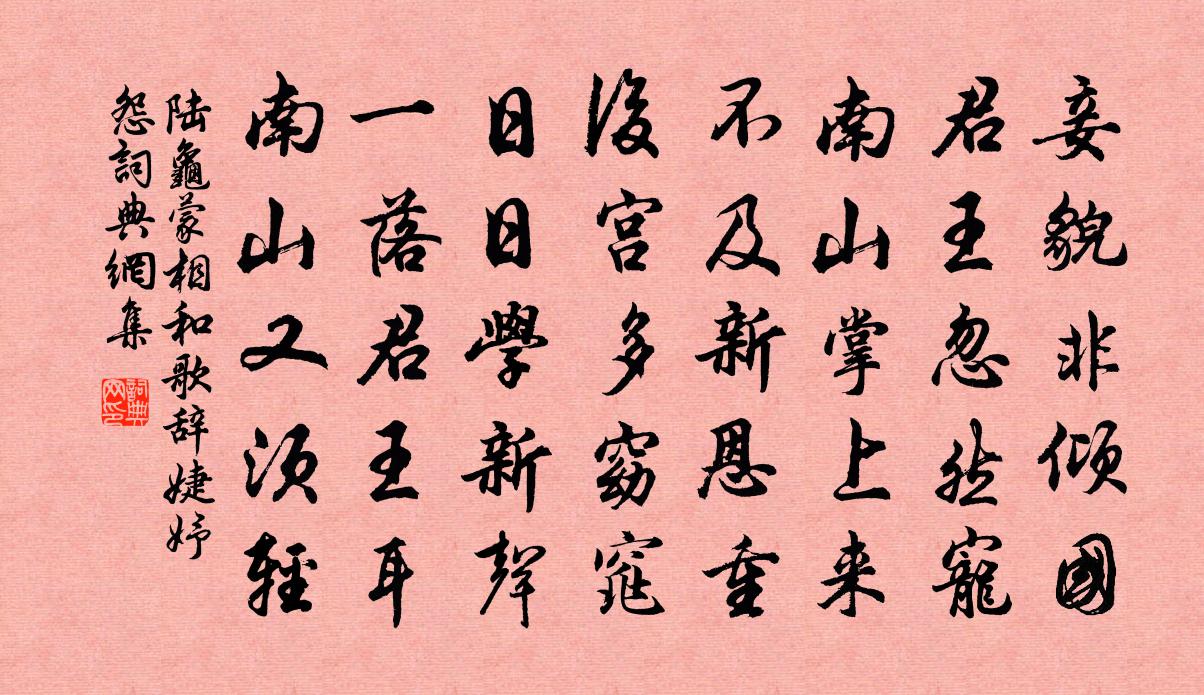 妾貌非傾國
君王忽然寵
南山掌上来
不及新恩重
後宫多窈窕
日日學新聲
一落君王耳
南山又須輕
陆龜蒙相和歌辞婕妤
怨詞典網集
詞典
网印